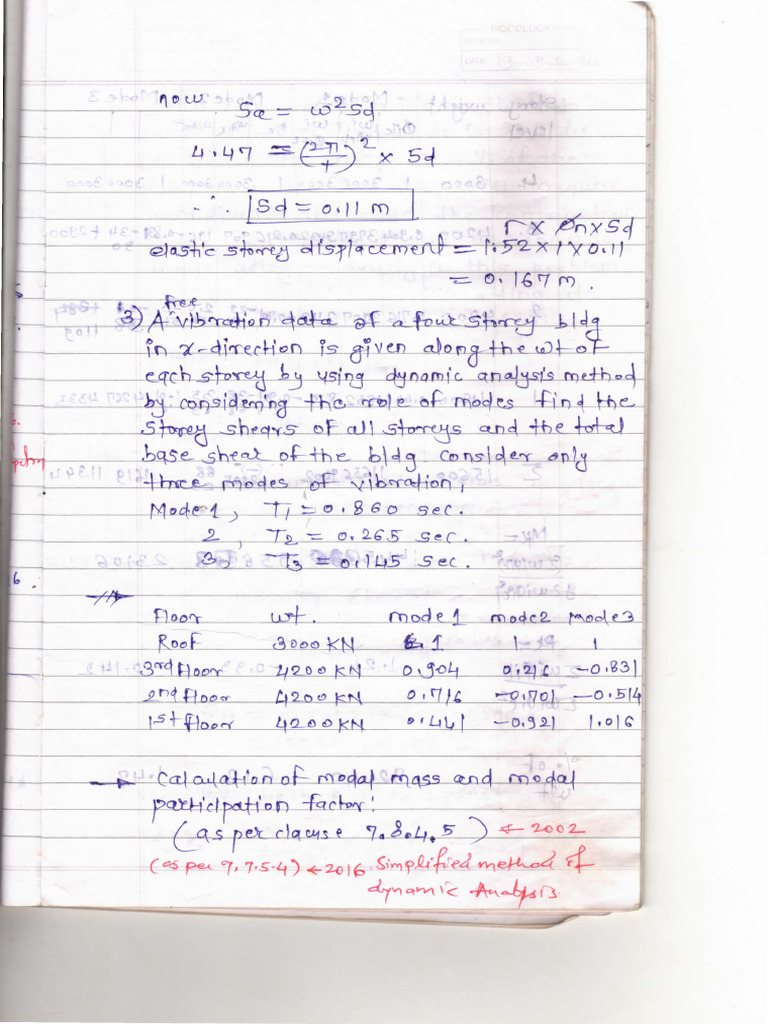 now
Sa = ω²Sd
4.47 = (2π/T)² × Sd
∴ Sd = 0.11 m
Γ × Øn × Sd
elastic storey displacement = 1.52 × 1 × 0.11
= 0.167 m.
free
3) A vibration data of a four storey bldg
in x-direction is given along the wt of
each storey by using dynamic analysis method
by considering the role of modes find the
storey shears of all storeys and the total
base shear of the bldg consider only
three modes of vibration,
Mode 1, T1 = 0.860 sec.
2, T2 = 0.265 sec.
3, T3 = 0.145 sec.
Floor wt. mode 1 mode2 mode3
Roof 3000 KN 1 1 1
3rd Floor 4200 KN 0.904 0.216 -0.831
2nd floor 4200 KN 0.716 -0.701 -0.514
1st floor 4200 KN 0.441 -0.921 1.016
→ Calculation of modal mass and modal
participation factor:
(as per clause 7.8.4.5) ← 2002
(as per 7.7.5.4) ← 2016 Simplified method of
dynamic Analysis